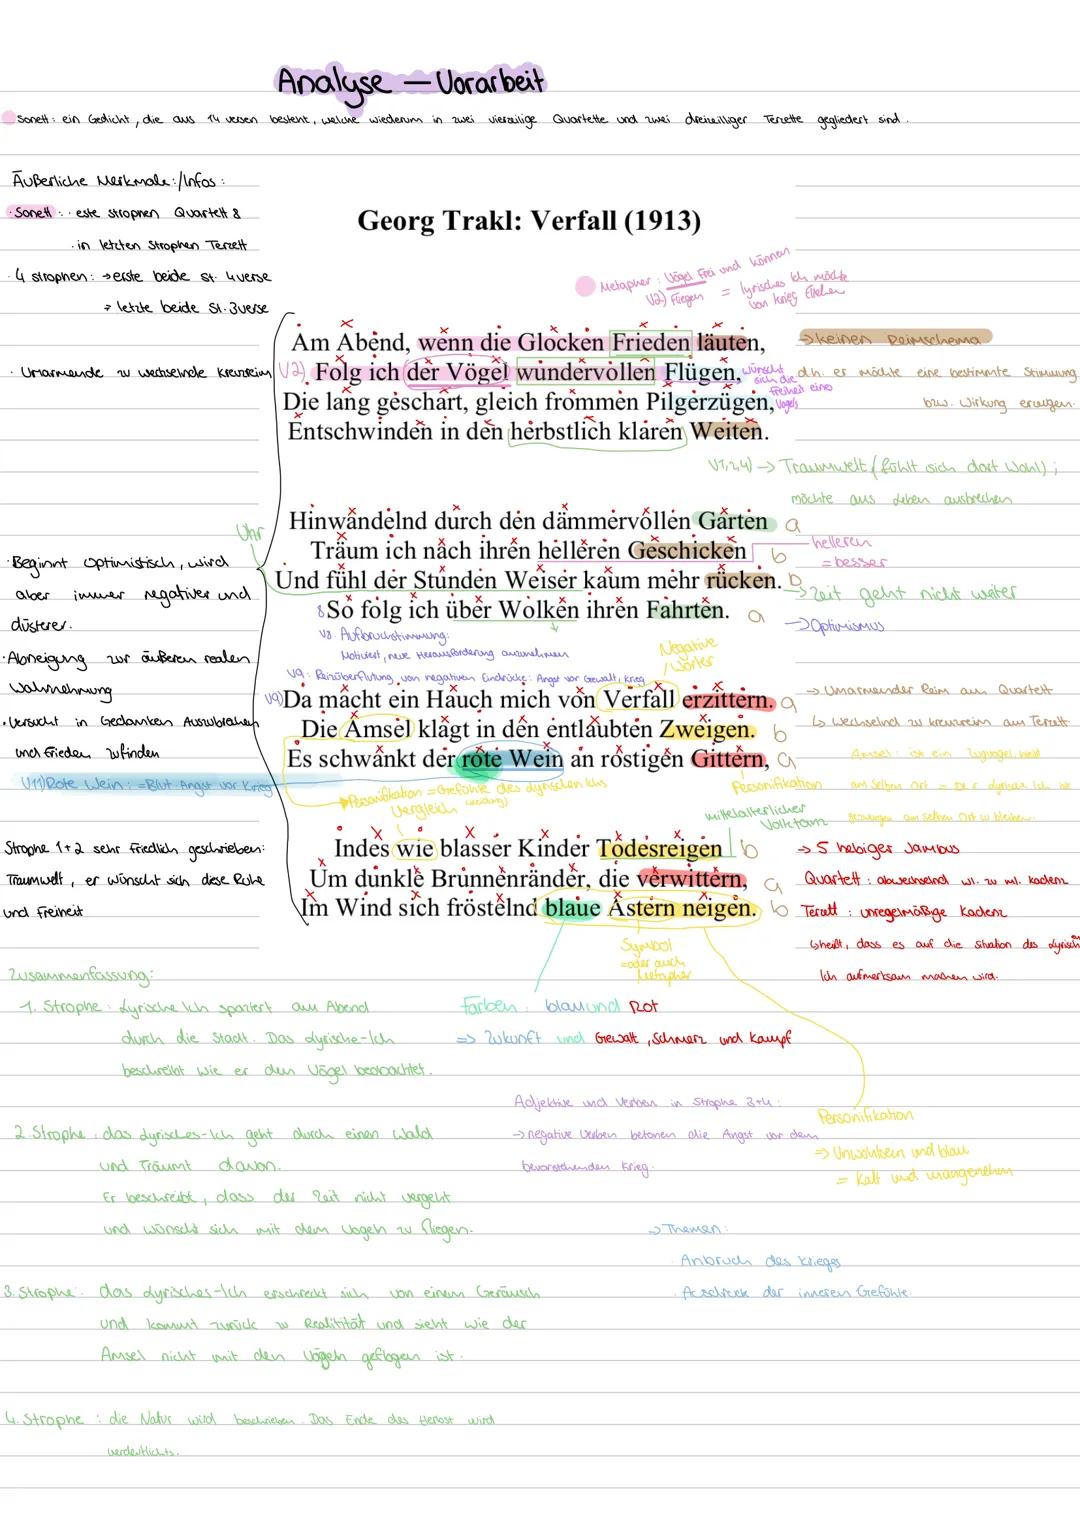 Analyse – Vorarbeit
Sonett: ein Gedicht, die aus 14 versen besteht, welche wiederum in zwei vierzeilige Quartette und zwei dreizeilliger Terzette gegliedert sind.
Äußerliche Merkmale:/Infos:
· Sonett: · este strophen Quartett &
· in letzten Strophen Terzett
· 4 strophen: → erste beide st. 4 verse
→ letzte beide St. 3 verse
· Umarmende zu wechselnde kreuzreim
Georg Trakl: Verfall (1913)
Metapher: Vögel Frei und können
V2) Fliegen = lyrisches Ich möchte
von krieg fliehen
Am Abend, wenn die Glocken Frieden läuten,
V2) Folg ich der Vögel wundervollen Flügen,
Die lang geschart, gleich frommen Pilgerzügen,
Entschwinden in den herbstlich klaren Weiten.
wünscht
sich die
Freiheit eins
Vogels
→ keinen Reimschema
d.h. er möchte eine bestimmte Stimmung
bzw. Wirkung erzeugen.
V1,2,4) → Traumwelt (fühlt sich dort wohl);
möchte aus Leben ausbrechen
Uhr
Hinwandelnd durch den dämmervollen Garten a
Träum ich nach ihren helleren Geschicken b
Und fühl der Stunden Weiser kaum mehr rücken. b
8 So folg ich über Wolken ihren Fahrten. a
helleren
= besser
→ Zeit geht nicht weiter
→ Optimismus
V8: Aufbruchstimmung:
Motiviert, neue Herausforderung anzunehmen
V9: Reizüberflutung von negativen Eindrücke: Angst vor Gewalt, Krieg
Negative
Wörter
· Beginnt optimistisch, wird
aber immer negativer und
düsterer.
· Abneigung zur äußeren realen
Wahrnehmung
· Versucht in Gedanken Auszubrechen
und Frieden zu finden
V11) Rote Wein: = Blut. Angst vor Krieg
V9) Da macht ein Hauch mich von Verfall erzittern. a
Die Amsel klagt in den entlaubten Zweigen. b
Es schwankt der rote Wein an rostigen Gittern, a
→ Umarmender Reim am Quartett
↳ wechselnd zu kreuzreim am Terzett
Amsel: ist ein Zugvogel, bleibt
am selben Ort = Der lyrisches Ich ist
gezwungen am selben Ort zu bleiben.
Personifikation = Gefühle des lyrischen Ichs
Vergleich
Personifikation
mittelalterlicher
Volkstanz
Strophe 1+2 sehr Friedlich geschrieben:
Traumwelt, er wünscht sich diese Ruhe
und Freiheit
Indes wie blasser Kinder Todesreigen b
Um dunkle Brunnenränder, die verwittern, a
Im Wind sich fröstelnd blaue Astern neigen. b
→ 5 hebiger Jambus
Quartett: abwechselnd wl. zu ml. kadenz
Terzett: unregelmäßige Kadenz
↳ heißt, dass es auf die Situation des lyrisch
Ich aufmerksam machen wird.
Symbol
= oder auch
Metapher
Zusammenfassung:
1. Strophe: Lyrische Ich spaziert am Abend
durch die Stadt. Das Lyrische-Ich
beschreibt wie er den Vögel beobachtet.
Farben: blau und Rot
=> Zukunft und Gewalt, Schmerz und Kampf
Adjektive und Verben in Strophe 3+4:
→ negative Verben betonen die Angst vor dem
bevorstehenden Krieg.
Personifikation
=> Unwohlsein und blau
= Kalt und unangenehm
2. Strophe: das Lyrisches-Ich geht durch einen Wald
und Träumt davon.
Er beschreibt, dass der Zeit nicht vergeht
und wünscht sich mit dem Vogeln zu fliegen.
→ Themen:
· Anbruch des Krieges
· Ausdruck der inneren Gefühle.
3. Strophe: das Lyrisches-Ich erschreckt sich von einem Geräusch
und kommt zurück zu Realitität und sieht wie der
Amsel nicht mit den Vögeln geflogen ist.
4. Strophe: die Natur wird beschrieben. Das Ende des Herbst wird
verdeutlichts.